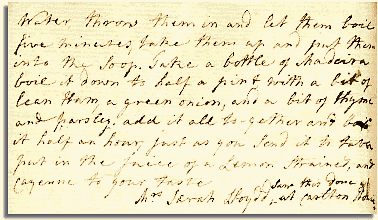 Water throw them in and let them boil
five minutes, take them up and put them
into the Soop. Take a bottle of Madeira
boil it down to half a pint with a bit of
lean Ham, a green onion, and a bit of thyme
and parsley, add it all to-gether and boil
it half an hour, just as you send it to table
put in the juice of a Lemon Strained, and
cayenne to your taste
Mrs Sarah Lloyd Saw this done
at Carlton